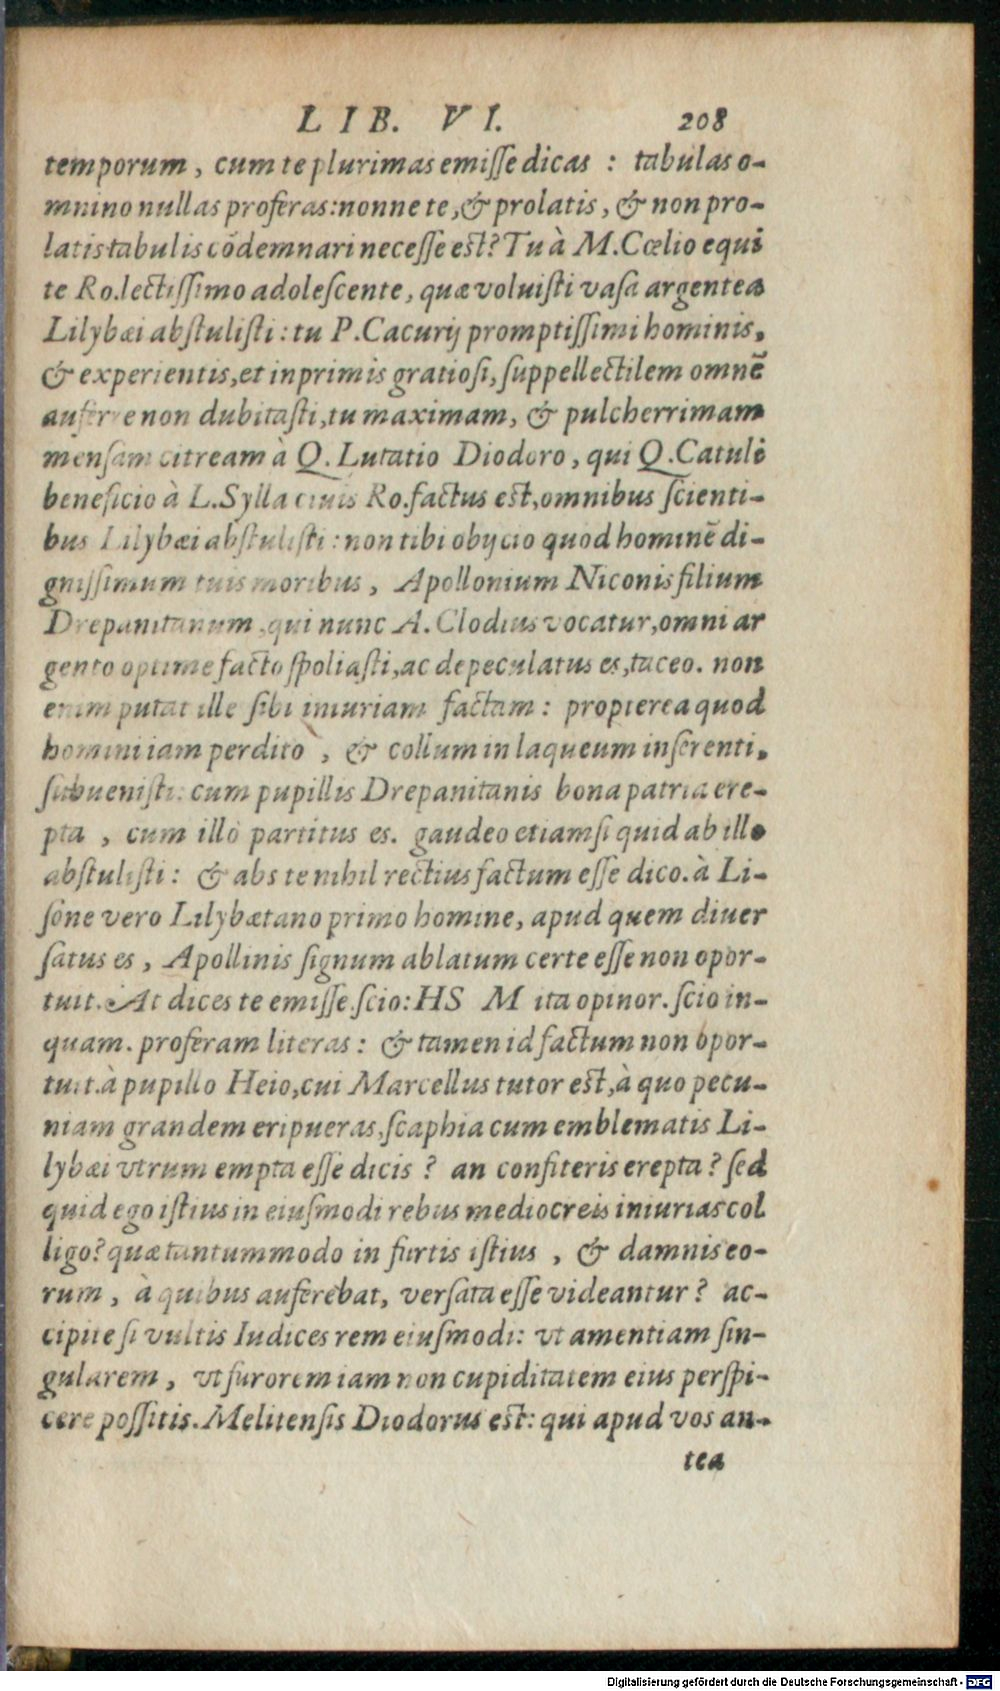 LIB. VI. 208
temporum, cum te plurimas emiſſe dicas : tabulas o-
mnino nullas proferas: nonne te, & prolatis, & non pro-
latis tabulis cōdemnari neceſſe est? Tu à M. Cœlio equi
te Ro. lectiſſimo adoleſcente, quæ voluiſti vaſa argentea
Lilybæi abſtuliſti: tu P. Cacurij promptiſſimi hominis,
& experientis, et inprimis gratioſi, ſuppellectilem omnē
auferre non dubitaſti, tu maximam, & pulcherrimam
menſam citream à Q. Lutatio Diodoro, qui Q. Catuli
beneficio à L. Sylla ciuis Ro. factus est, omnibus ſcienti-
bus Lilybæi abſtuliſti: non tibi obijcio quod hominē di-
gniſſimum tuis moribus, Apollonium Niconis filium
Drepanitanum, qui nunc A. Clodius vocatur, omni ar
gento optime facto ſpoliaſti, ac depeculatus es, taceo. non
enim putat ille ſibi iniuriam factam: propterea quod
homini iam perdito, & collum in laqueum inſerenti,
ſubueniſti: cum pupillis Drepanitanis bona patria ere-
pta, cum illo partitus es. gaudeo etiamſi quid ab illo
abſtuliſti: & abs te nihil rectius factum eſſe dico. à Li-
ſone vero Lilybætano primo homine, apud quem diuer
ſatus es, Apollinis ſignum ablatum certe eſſe non opor-
tuit. At dices te emiſſe. ſcio: HS M ita opinor. ſcio in-
quam. proferam literas: & tamen id factum non opor-
tuit. à pupillo Heio, cui Marcellus tutor est, à quo pecu-
niam grandem eripueras, ſcaphia cum emblematis Li-
lybæi vtrum empta eſſe dicis? an confiteris erepta? ſed
quid ego iſtius in eiuſmodi rebus mediocreis iniurias col
ligo? quæ tantummodo in furtis iſtius, & damnis eo-
rum, à quibus auferebat, verſata eſſe videantur? ac-
cipite ſi vultis Iudices rem eiuſmodi: vt amentiam ſin-
gularem, vt furorem iam non cupiditatem eius perſpi-
cere poſſitis. Melitenſis Diodorus est: qui apud vos an-
tea
Digitalisierung gefördert durch die Deutsche Forschungsgemeinschaft - DFG